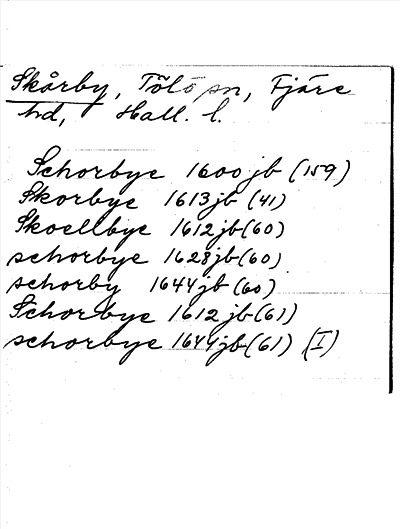 Skårby, Tölö sn, Fjäre
hd, Hall. l.
Schorbye 1600 jb (159)
Skorbye 1613 jb (41)
Skoellbye 1612 jb (60)
schorbye 1628 jb (60)
schorby 1644 jb (60)
Schorbye 1612 jb (61)
schorbye 1644 jb (61) (I)